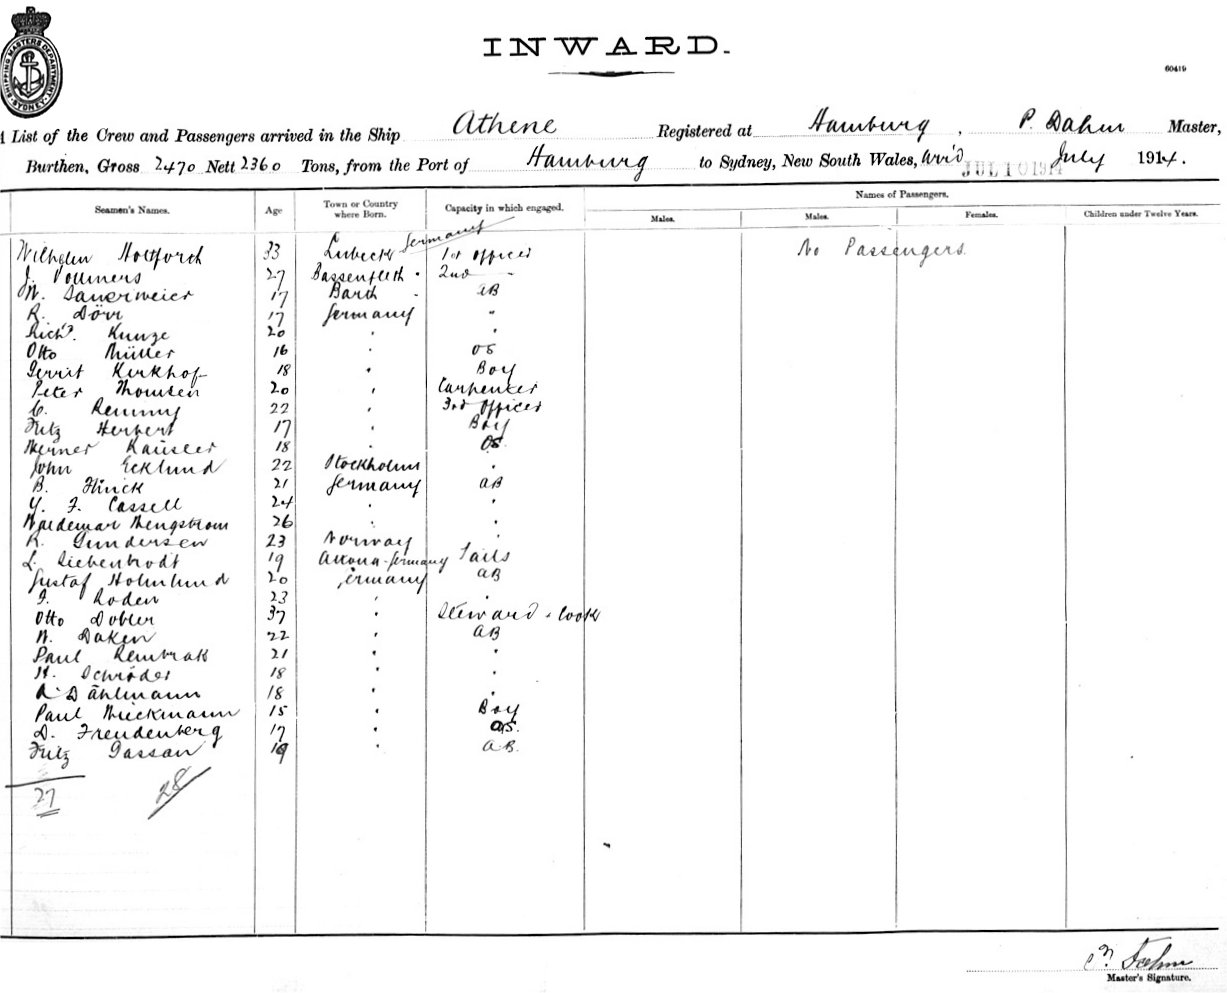 SHIPPING MASTERS DEPARTMENT SYDNEY
INWARD.
60419
A List of the Crew and Passengers arrived in the Ship Athene Registered at Hamburg, P. Dahm Master,
Burthen, Gross 2470 Nett 2360 Tons, from the Port of Hamburg to Sydney, New South Wales, Arr'd JUL 10 1914 July 1914.
Seamen's Names. Age Town or Country where Born. Capacity in which engaged. Names of Passengers.
Males. Males. Females. Children under Twelve Years.
Wilhelm 33 Lubeck Germany 1st Officer No Passengers
J. Vollmers 27 Bassenfleth " 2nd "
W. Sauermeier 17 Barth " AB
R. Dörr 17 Germany "
Richd. Kunze 20 " "
Otto Müller 16 " OS
Gerrit Kirkhof 18 " Boy
Peter Thomsen 20 " Carpenter
C. Remmy 22 " 3rd Officer
Fritz Herbert 17 " Boy
Werner Kaüsler 18 " OS.
John Ecklund 22 Stockholm "
B. Flinck 21 Germany AB
Y. F. Cassell 24 " "
Waldemar Wengstrom 26 " "
R. Gundersen 23 Norway "
L. Siebenbrodt 19 Altona-Germany Sails
Gustaf Holmlund 20 Germany AB
F. Roden 23 " "
Otto Dobler 37 " Steward & Cook
W. Daken 22 " AB
Paul 21 " "
H. Schröder 18 " "
A. Dählmann 18 " "
Paul Thieckmann 15 " Boy
D. Freudenberg 17 " OS.
Fritz Gassan 19 " AB.
27 28
P. Dahm
Master's Signature.